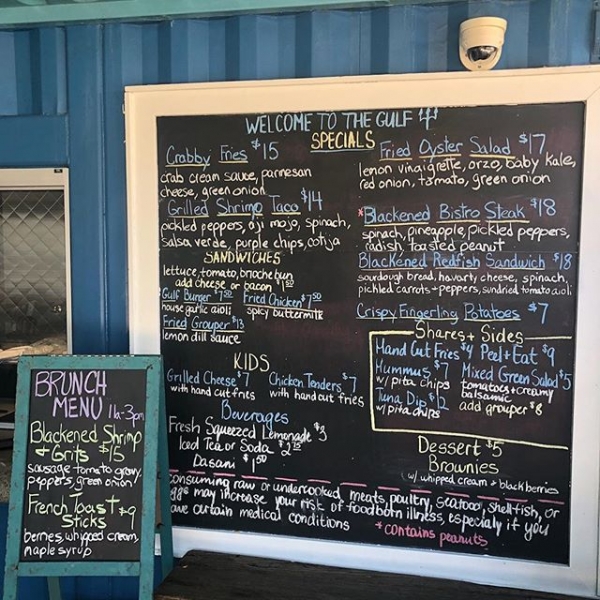 WELCOME TO THE GULF
SPECIALS
Crabby Fries $15
crab cream sauce, parmesan
cheese, green onion
Grilled Shrimp Taco $14
pickled peppers, aji mojo, spinach,
salsa verde, purple chips, cotija
SANDWICHES
lettuce, tomato, brioche bun
add cheese or bacon $1.50
Gulf Burger $7.50 Fried Chicken $7.50
house garlic aioli spicy buttermilk
Fried Grouper $13
lemon dill sauce
KIDS
Grilled Cheese $7 Chicken Tenders $7
with hand cut fries with hand cut fries
Beverages
Fresh Squeezed Lemonade $3
Iced Tea or Soda $2.75
Dasani $1.50
Fried Oyster Salad $17
lemon vinaigrette, orzo, baby kale,
red onion, tomato, green onion
*Blackened Bistro Steak $18
spinach, pineapple, pickled peppers,
radish, toasted peanut
Blackened Redfish Sandwich $18
sourdough bread, havarty cheese, spinach
pickled carrots + peppers, sundried tomato aioli
Crispy Fingerling Potatoes $7
Shares + Sides
Hand Cut Fries $4 Peel + Eat $9
Hummus $7 Mixed Green Salad $5
w/ pita chips tomatoes + creamy
balsamic
Tuna Dip $12 add grouper $8
w/ pita chips
Dessert $5
Brownies
w/ whipped cream + blackberries
consuming raw or undercooked meats, poultry, seafood, shellfish, or
eggs may increase your risk of foodborn illness, especialy if you
have certain medical conditions
*contains peanuts
BRUNCH
MENU 11a-3pm
Blackened Shrimp
+ Grits $15
sausage tomato gravy,
peppers, green onion
French Toast
Sticks $9
berries, whipped cream,
maple syrup